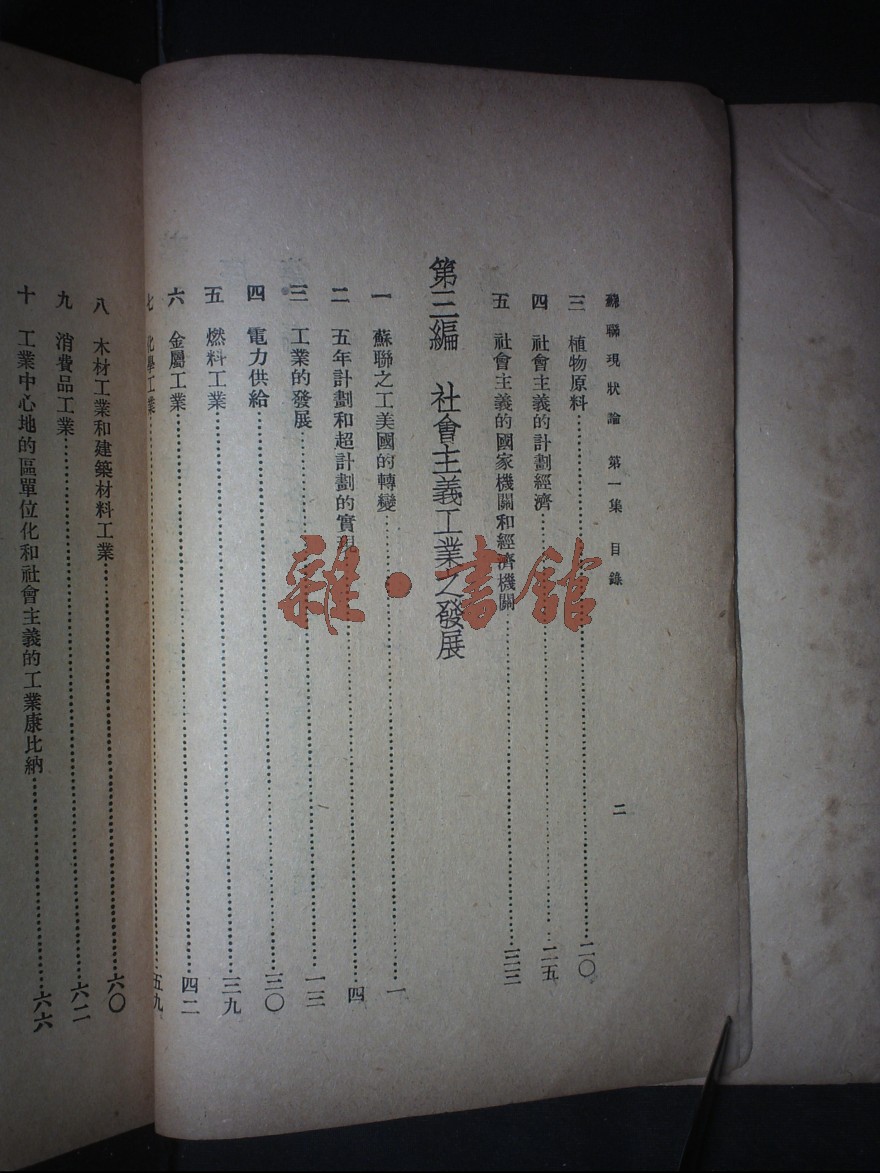 蘇聯現狀論　第一集　目錄　二
三　植物原料……二〇
四　社會主義的計劃經濟……二五
五　社會主義的國家機關和經濟機關……三三
第三編　社會主義工業之發展
一　蘇聯之工美國的轉變……一
二　五年計劃和超計劃的實現……四
三　工業的發展……一三
四　電力供給……三〇
五　燃料工業……三九
六　金屬工業……四二
七　化學工業……五九
八　木材工業和建築材料工業……六〇
九　消費品工業……六二
十　工業中心地的區單位化和社會主義的工業康比納……六六
雜·書館